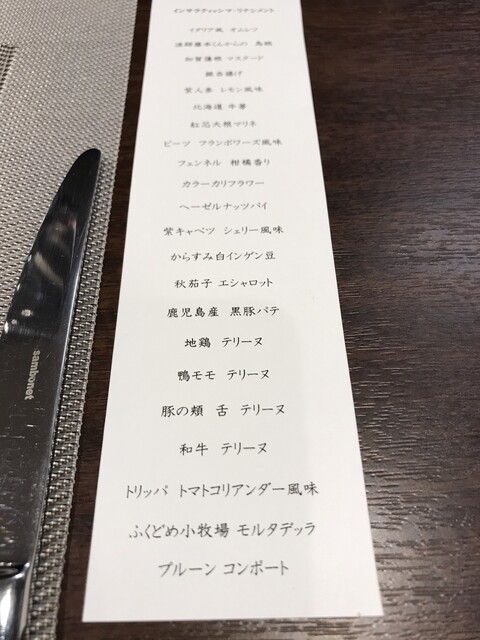 インサラティッシマ・リナシメント
イタリア風 オムレツ
マスタード
紫人参 レモン風味
北海道 牛蒡
紅芯大根マリネ
ビーツ フランボワーズ風味
フェンネル 柑橘香り
カラーカリフラワー
ヘーゼルナッツパイ
紫キャベツ シェリー風味
からすみ白インゲン豆
秋茄子 エシャロット
鹿児島産 黒豚パテ
地鶏 テリーヌ
鴨モモ テリーヌ
豚の頬 舌 テリーヌ
和牛 テリーヌ
トリッパ トマトコリアンダー風味
ふくどめ小牧場 モルタデッラ
プルーン コンポート
sambonet